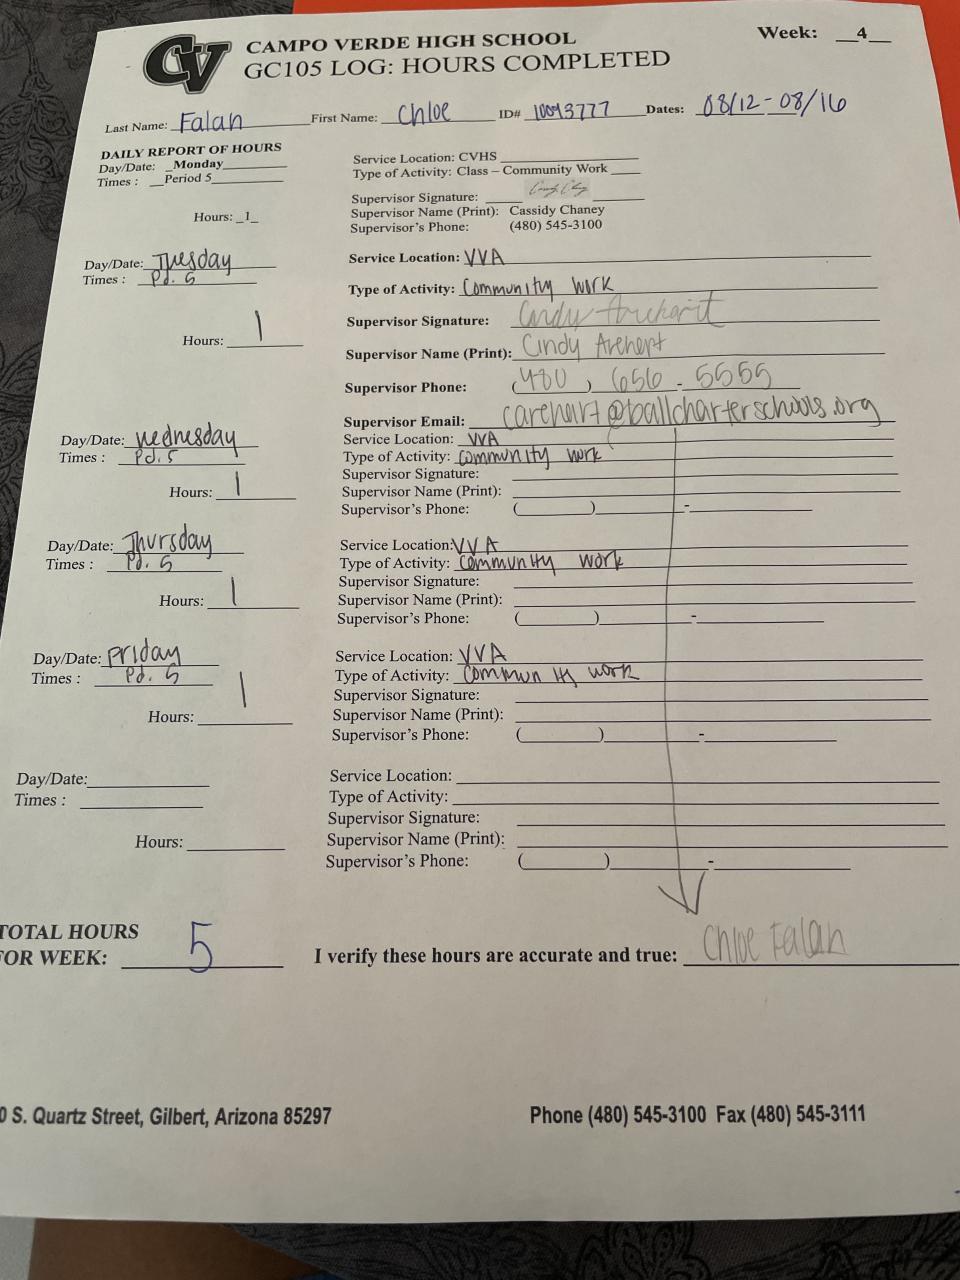 CV CAMPO VERDE HIGH SCHOOL Week: __4__
GC105 LOG: HOURS COMPLETED
Last Name: Falan First Name: Chloe ID# Dates: 08/12-08/16
DAILY REPORT OF HOURS
Day/Date: _Monday
Times : __Period 5
Hours: _1_
Service Location: CVHS
Type of Activity: Class – Community Work
Supervisor Signature:
Supervisor Name (Print): Cassidy Chaney
Supervisor's Phone: (480) 545-3100
Day/Date: Tuesday
Times : Pd. 5
Hours: 1
Service Location: VVA
Type of Activity: Community Work
Supervisor Signature: Cindy
Supervisor Name (Print): Cindy Arehart
Supervisor Phone: (480) 656-5555
Supervisor Email: carehart@ballcharterschools.org
Day/Date: Wednesday
Times : Pd. 5
Hours: 1
Service Location: VVA
Type of Activity: Community Work
Supervisor Signature:
Supervisor Name (Print):
Supervisor's Phone: ( ) -
Day/Date: Thursday
Times : Pd. 5
Hours: 1
Service Location: VVA
Type of Activity: Community work
Supervisor Signature:
Supervisor Name (Print):
Supervisor's Phone: ( ) -
Day/Date: Friday
Times : Pd. 5
Hours: 1
Service Location: VVA
Type of Activity: Community work
Supervisor Signature:
Supervisor Name (Print):
Supervisor's Phone: ( ) -
Day/Date:
Times :
Hours:
Service Location:
Type of Activity:
Supervisor Signature:
Supervisor Name (Print):
Supervisor's Phone: ( ) -
TOTAL HOURS
FOR WEEK: 5 I verify these hours are accurate and true: Chloe Falan
0 S. Quartz Street, Gilbert, Arizona 85297 Phone (480) 545-3100 Fax (480) 545-3111